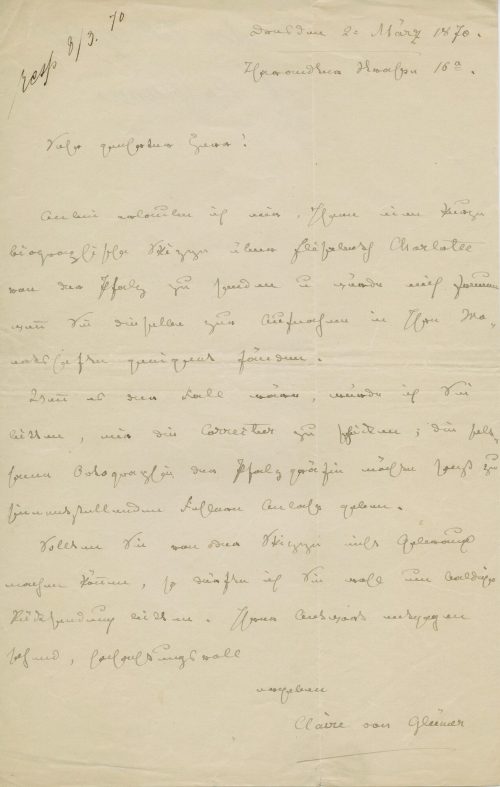 resp 8/3. 70
Dresden 2. März 1870.
16a.
Sehr geehrter Herr!
Anbei erlaube ich mir, Ihnen eine kurze
biographische Skizze über Elisabeth Charlotte
von der Pfalz zu senden u würde mich freuen
wenn Sie dieselbe zur Aufnahme in Ihre Mo-
natshefte geeignet fänden.
Wenn es der Fall wäre, würde ich Sie
bitten, mir die Correctur zu schicken; die selt-
same Orthographie der Pfalzgräfin möchte sonst zu
sinnentstellenden Fehlern Anlass geben.
Sollten Sie von der Skizze nicht Gebrauch
machen können, so dürfte ich Sie wohl um baldige
Rücksendung bitten. Ihrer Antwort entgegen
sehend, hochachtungsvoll
ergeben
Claire von Glümer